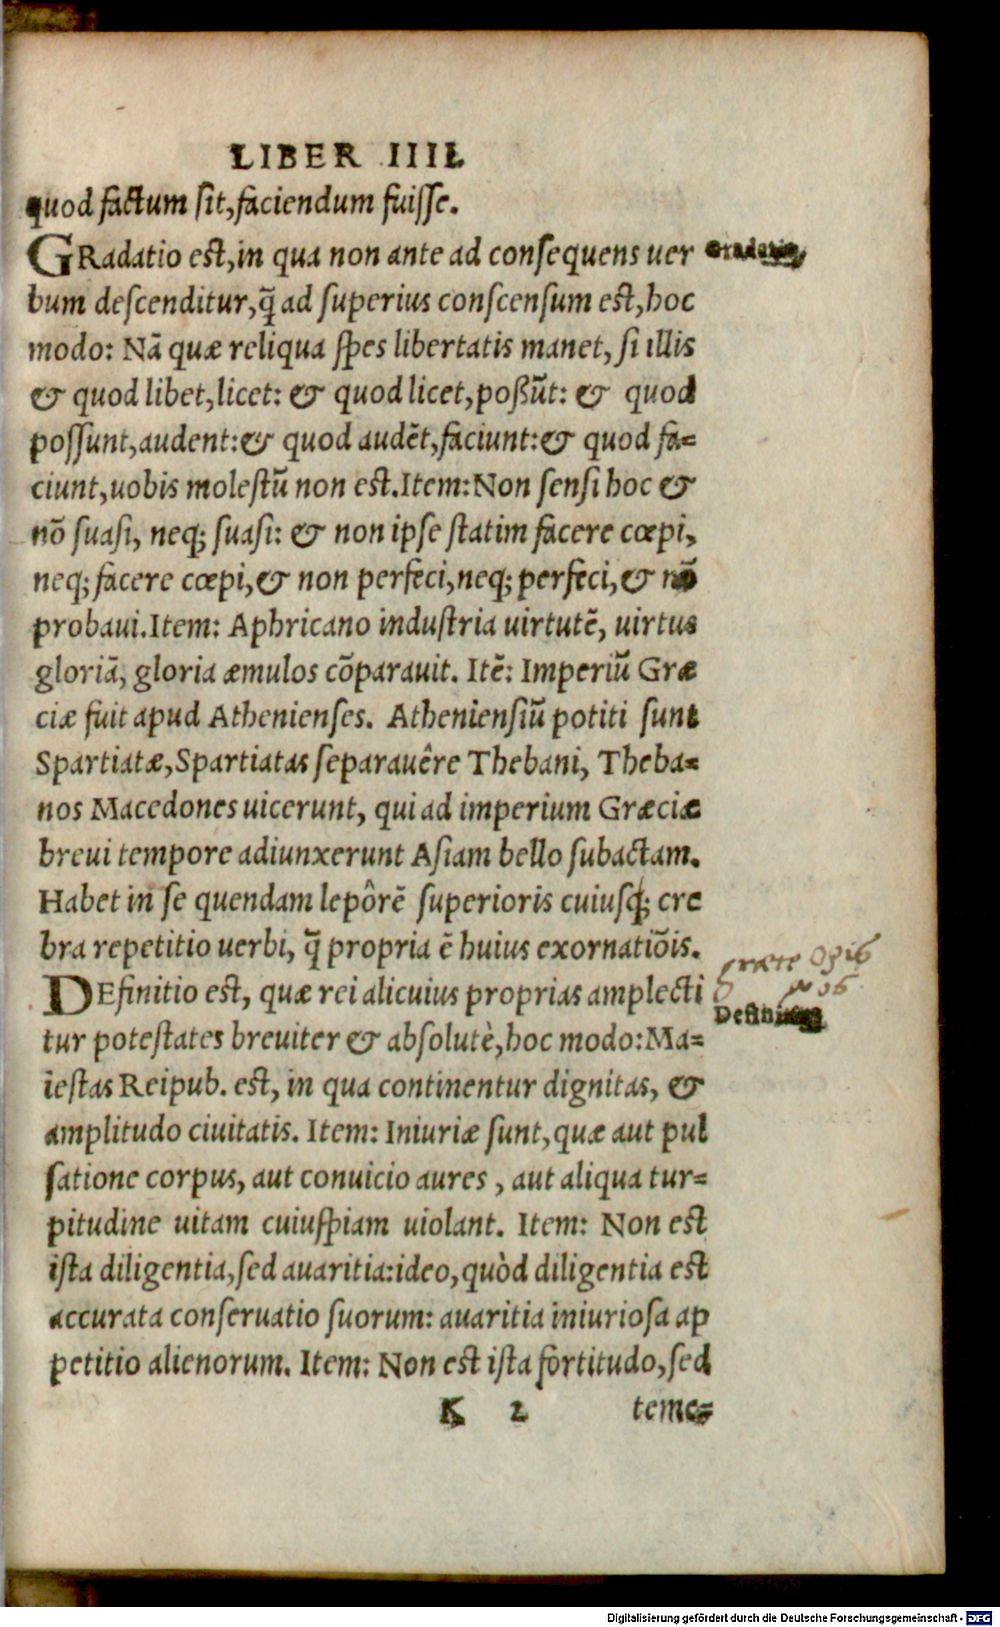 LIBER IIII.
quod factum sit, faciendum fuisse.
GRadatio est, in qua non ante ad consequens uer
Gradatio.
bum descenditur, q̃ ad superius conscensum est, hoc
modo: Nã quæ reliqua spes libertatis manet, si illis
& quod libet, licet: & quod licet, poßũt: & quod
possunt, audent: & quod audẽt, faciunt: & quod fa=
ciunt, uobis molestũ non est. Item: Non sensi hoc &
nõ suasi, neq; suasi: & non ipse statim facere cœpi,
neq; facere cœpi, & non perfeci, neq; perfeci, & nõ
probaui. Item: Aphricano industria uirtutẽ, uirtus
gloriã, gloria æmulos cõparauit. Itẽ: Imperiũ Græ
ciæ fuit apud Athenienses. Atheniensiũ potiti sunt
Spartiatæ, Spartiatas separauêre Thebani, Theba=
nos Macedones uicerunt, qui ad imperium Græciæ
breui tempore adiunxerunt Asiam bello subactam.
Habet in se quendam lepôrẽ superioris cuiusq; cre
bra repetitio uerbi, q̃ propria ẽ huius exornatiõis.
DEfinitio est, quæ rei alicuius proprias amplecti
tur potestates breuiter & absolutè, hoc modo: Ma=
iestas Reipub. est, in qua continentur dignitas, &
amplitudo ciuitatis. Item: Iniuriæ sunt, quæ aut pul
satione corpus, aut conuicio aures, aut aliqua tur=
pitudine uitam cuiuspiam uiolant. Item: Non est
ista diligentia, sed auaritia: ideo, quòd diligentia est
accurata conseruatio suorum: auaritia iniuriosa ap
petitio alienorum. Item: Non est ista fortitudo, sed
K 2 teme=
Digitalisierung gefördert durch die Deutsche Forschungsgemeinschaft - DFG